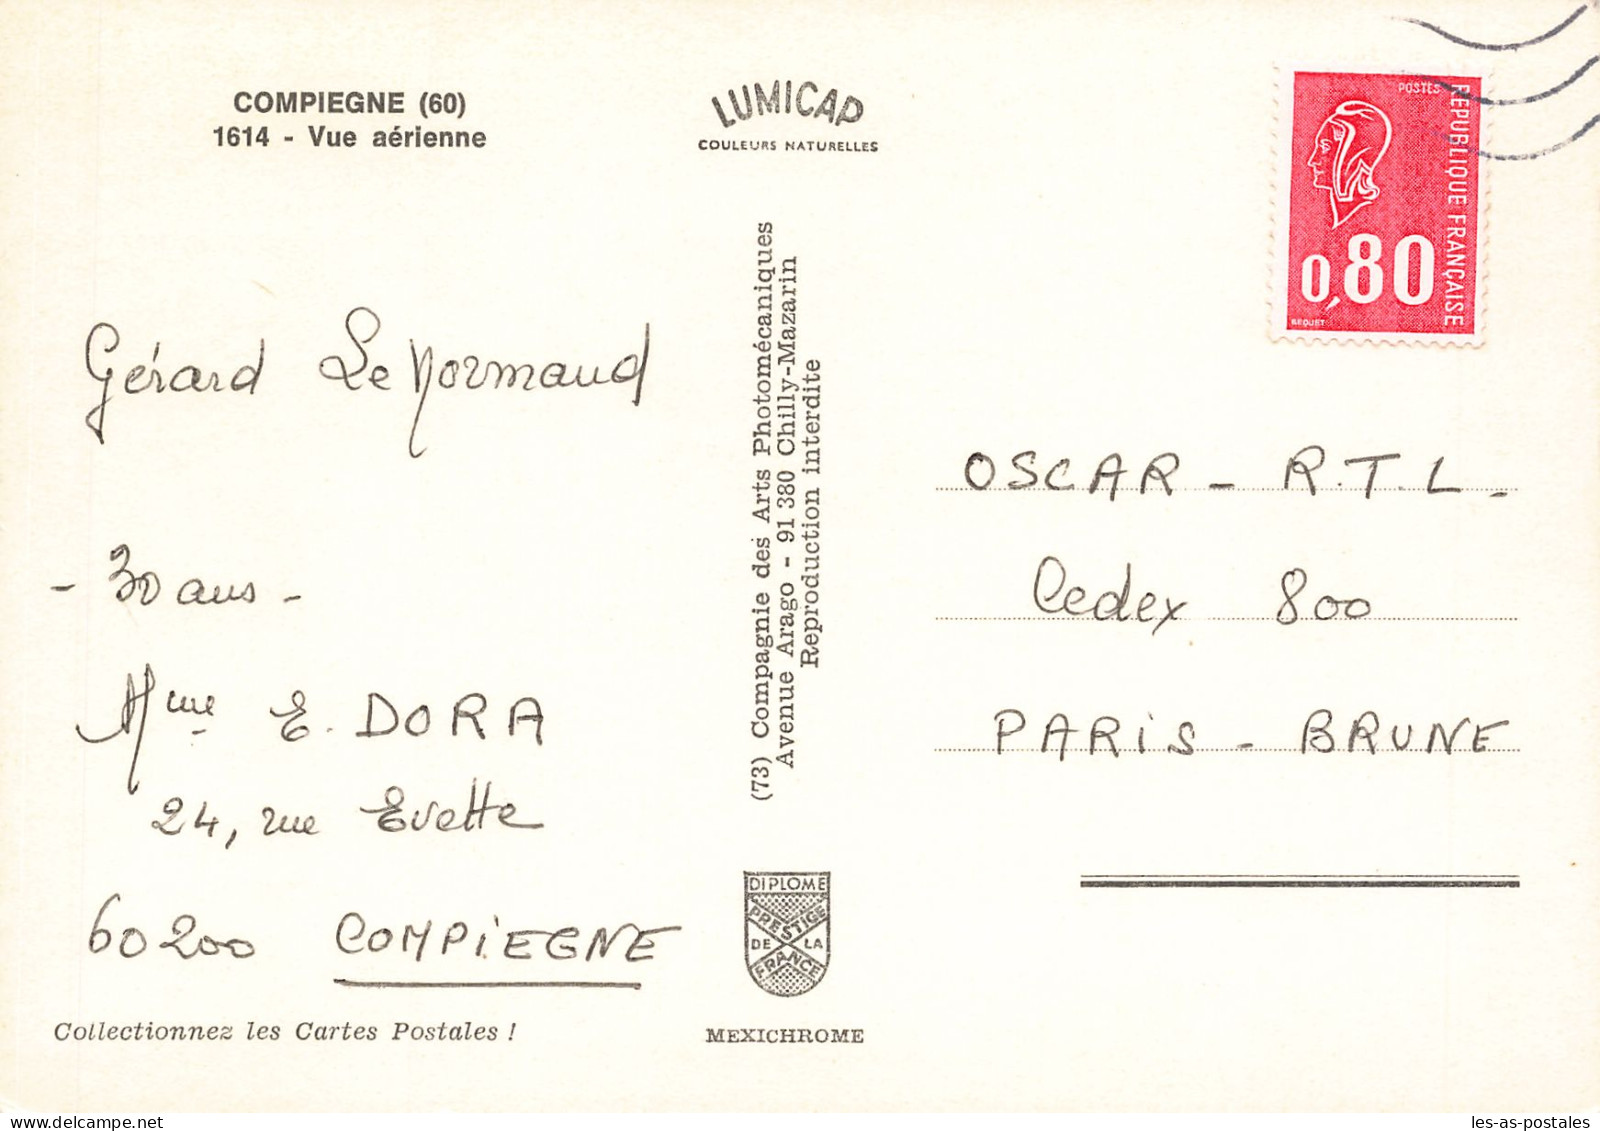 COMPIEGNE (60)
1614 - Vue aérienne
LUMICAP
COULEURS NATURELLES
POSTES
REPUBLIQUE FRANÇAISE
0,80
BEQUET
Gérard Le Normand
- 30 ans -
Mme E. DORA
24, rue Evette
60200 COMPIEGNE
Collectionnez les Cartes Postales !
(73) Compagnie des Arts Photomécaniques
Avenue Arago - 91 380 Chilly-Mazarin
Reproduction interdite
DIPLOME
PRESTIGE
DE LA
FRANCE
MEXICHROME
OSCAR - R.T.L.
Cedex 800
PARIS - BRUNE
les-as-postales